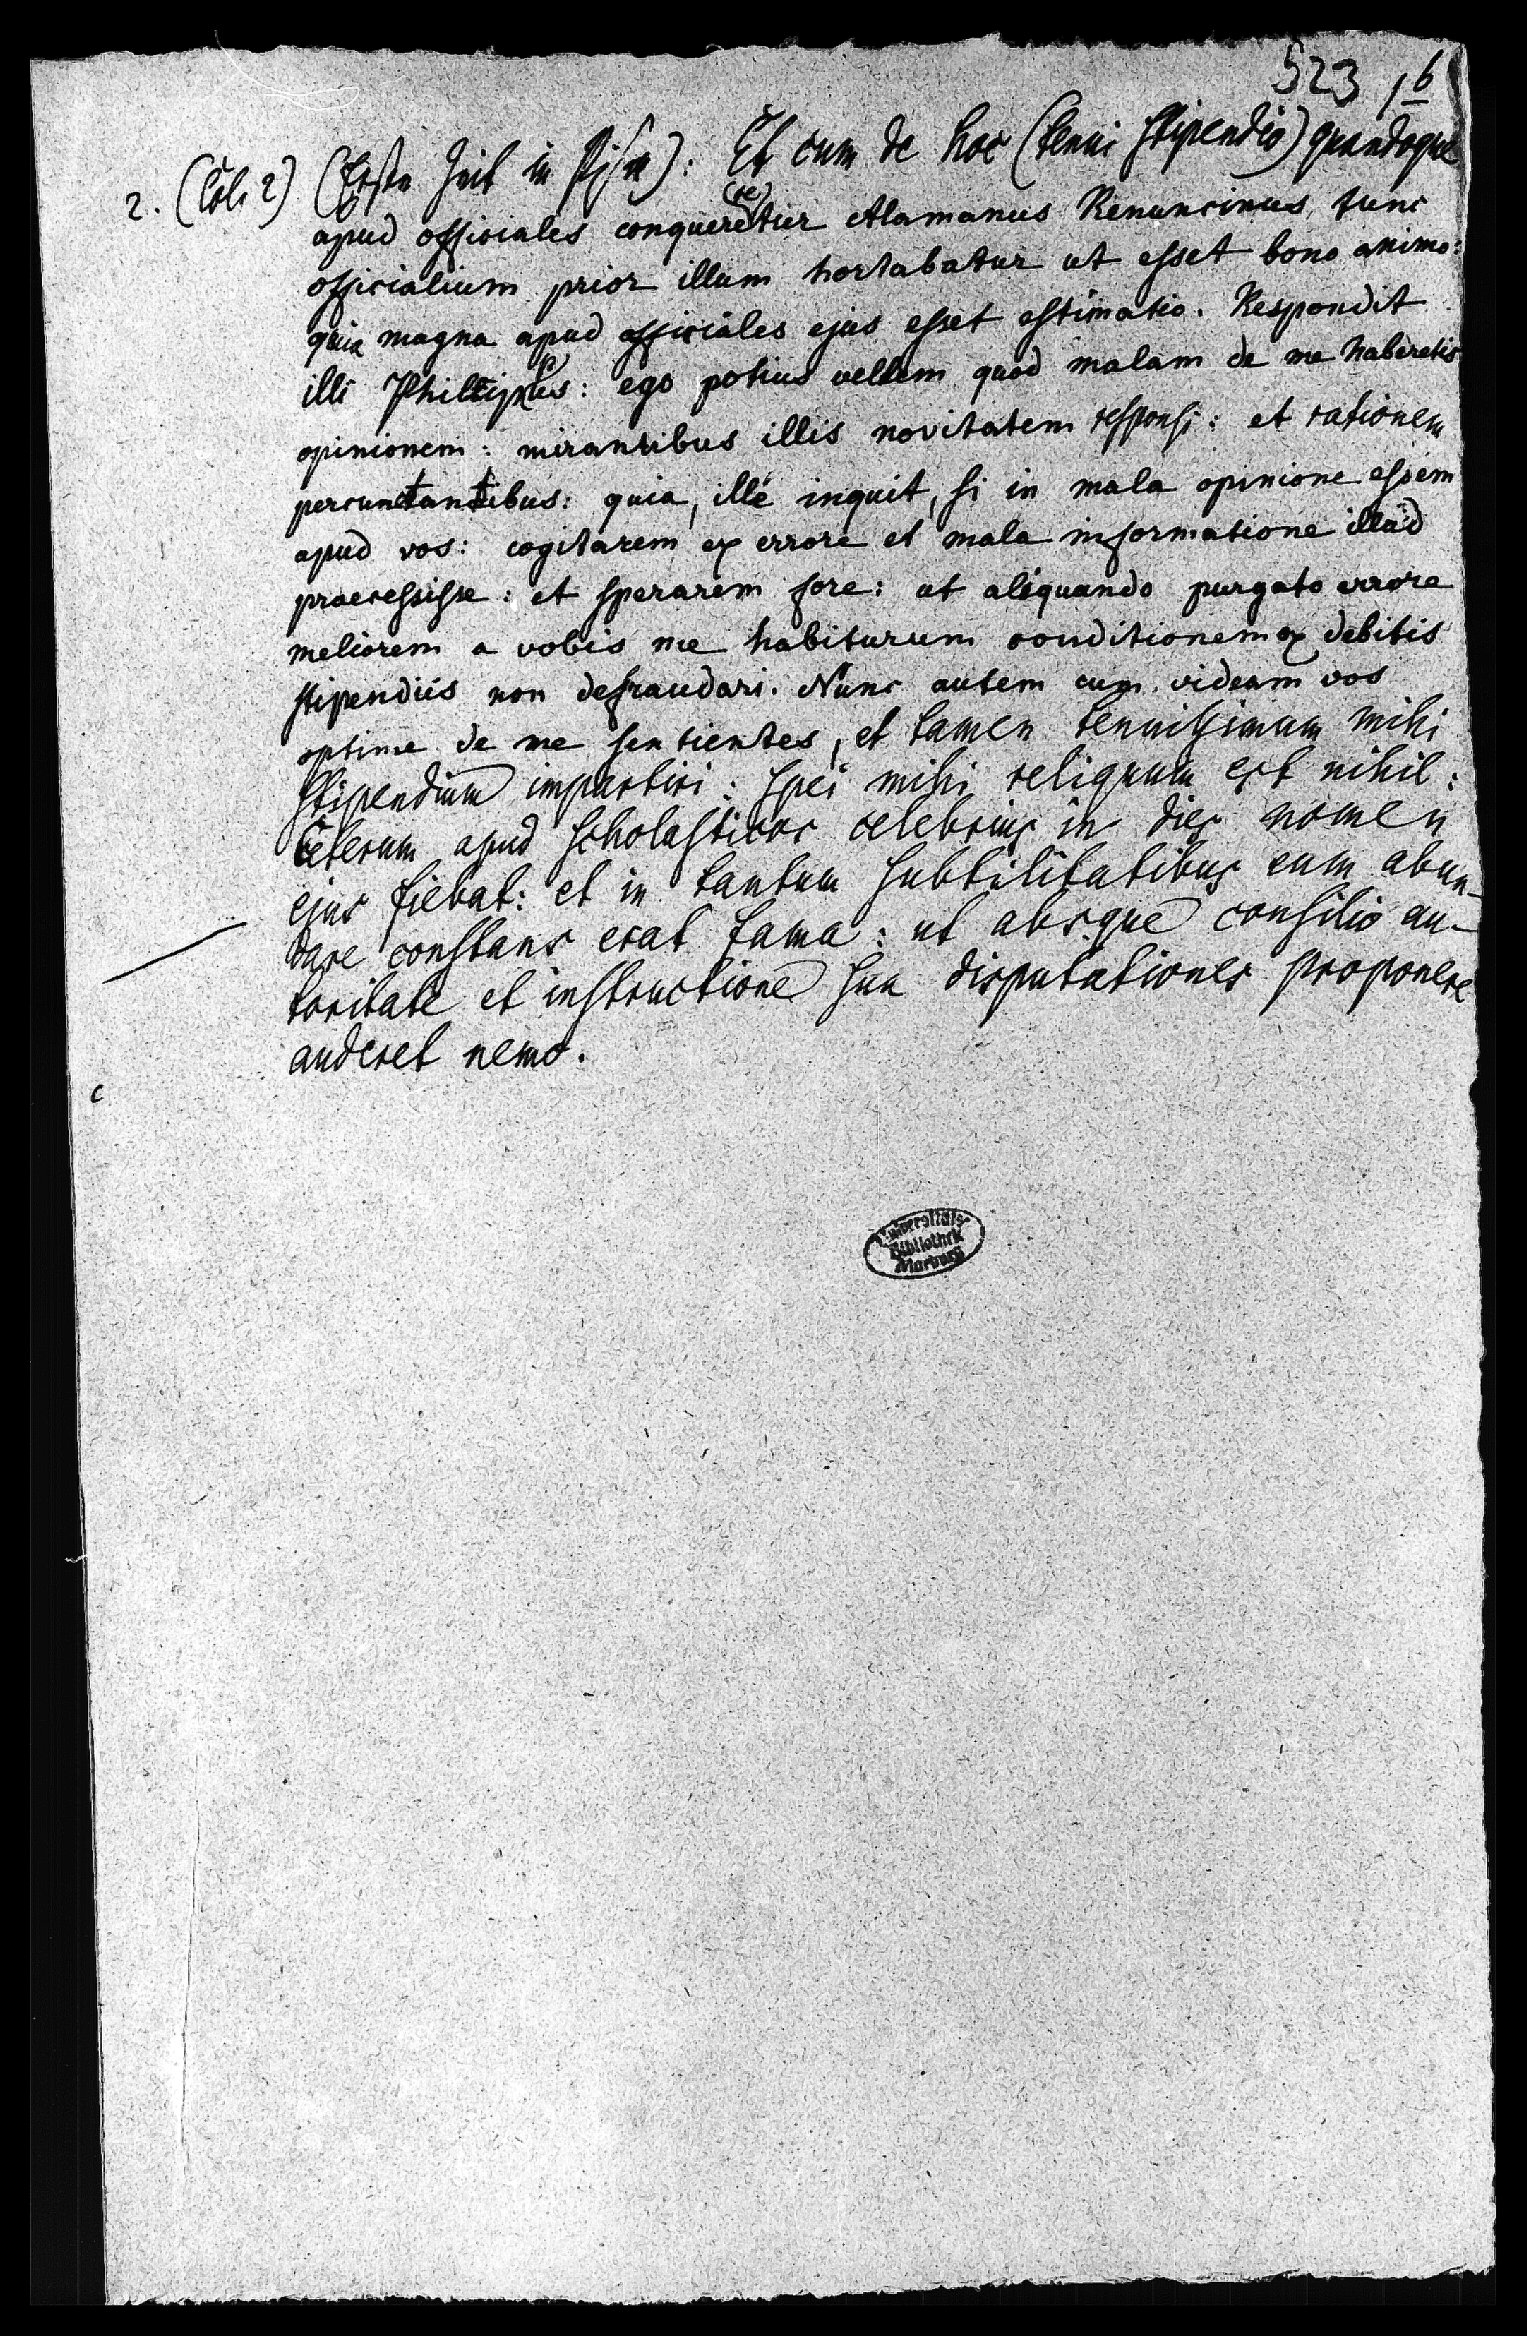 523 16
2. (Col. 2) (Erste Zeit in Pisa): Et cum de hoc (tenui stipendio) quandoque
apud officiales conqueretur (re) Alamanus Renuncinus, tunc
officialium prior illum hortabatur ut esset bono animo:
quia magna apud officiales ejus esset estimatio. Respondit
illi Philippus: ego potius vellem quod malam de me haberetis
opinionem: mirantibus illis novitatem responsi: et rationem
percunctantibus: quia, ille inquit, si in mala opinione essem
apud vos: cogitarem ex errore et mala informatione illud
processisse: et sperarem fore: ut aliquando purgato errore
meliorem a vobis me habiturum conditionem ex debitis
stipendiis non defraudari. Nunc autem cum videam vos
optime de me sentientes, et tamen tenuissimum mihi
stipendium impartiri: spei mihi reliquum est nihil:
Ceterum apud scholasticos celebrius in dies nomen
ejus fiebat: et in tantum subtilitatibus eum abun-
dare constans erat fama: ut absque consilio au-
toritate et instructione sua disputationes proponere
auderet nemo.
Universitäts
Bibliothek
Marburg